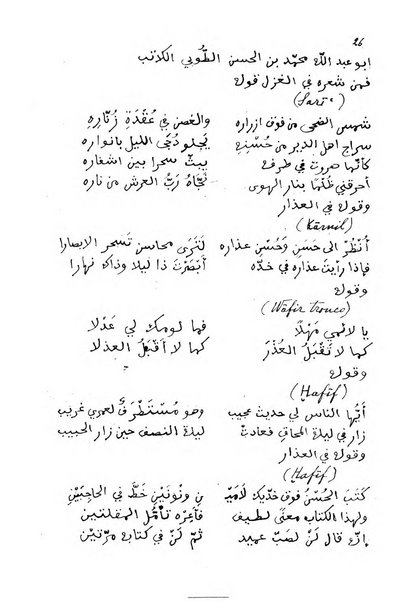 26
ابو عبد الله محمّد بن الحسن الطُوبي الكاتب
فمن شعره في الغزل قوله
(Sarīʿ)
شمس الضحى من فوق ازراره والغصن في عُقْدَةِ زُنّارِه
سراج اهل الدير من حُسْنِهِ يجلو دُجَى الليل بانواره
كأنّها هاروت في طرفه يبثّ سحرا بين اشفاره
أحرقني ظُلْمًا بنار الهوى نجّاه رَبُّ العرش من ناره
وقوله في العذار
(Kāmil)
أُنْظُرْ الى حَسَنٍ وَحُسْنِ عذاره لَتَرَى محاسن تَسحر الابصارا
فإذا رأيتَ عذاره في خدّه أَبْصَرْتَ ذا ليلا وذاك نهارا
وقوله
(Wāfir tronco)
يا لائمي مَهْلًا فما لومك لي عَدْلا
كما لا تَقْبَلُ العُذْرَ كما لا أقْبَلُ العذلا
وقوله
(Hafīf)
أيّها الناس لي حديث عجيب وهو مُسْتَظْرَفٌ لعمري غريب
زار في ليلة المحاق فعادتْ ليلة النصف حين زار الحبيب
وقوله في العذار
(Hafīf)
كَتَبَ الحُسْنُ فوق خدّيك لامَيْـ نِ ونُونَيْنِ خَطَّ في الحاجِبَيْنِ
ولهذا الكتاب معنًى لطيف فأَعِرْه تأمّل المقلتين
إنّه قال لَنْ لصَبٍّ عميد ثمّ لَنْ في كتابه مرّتين